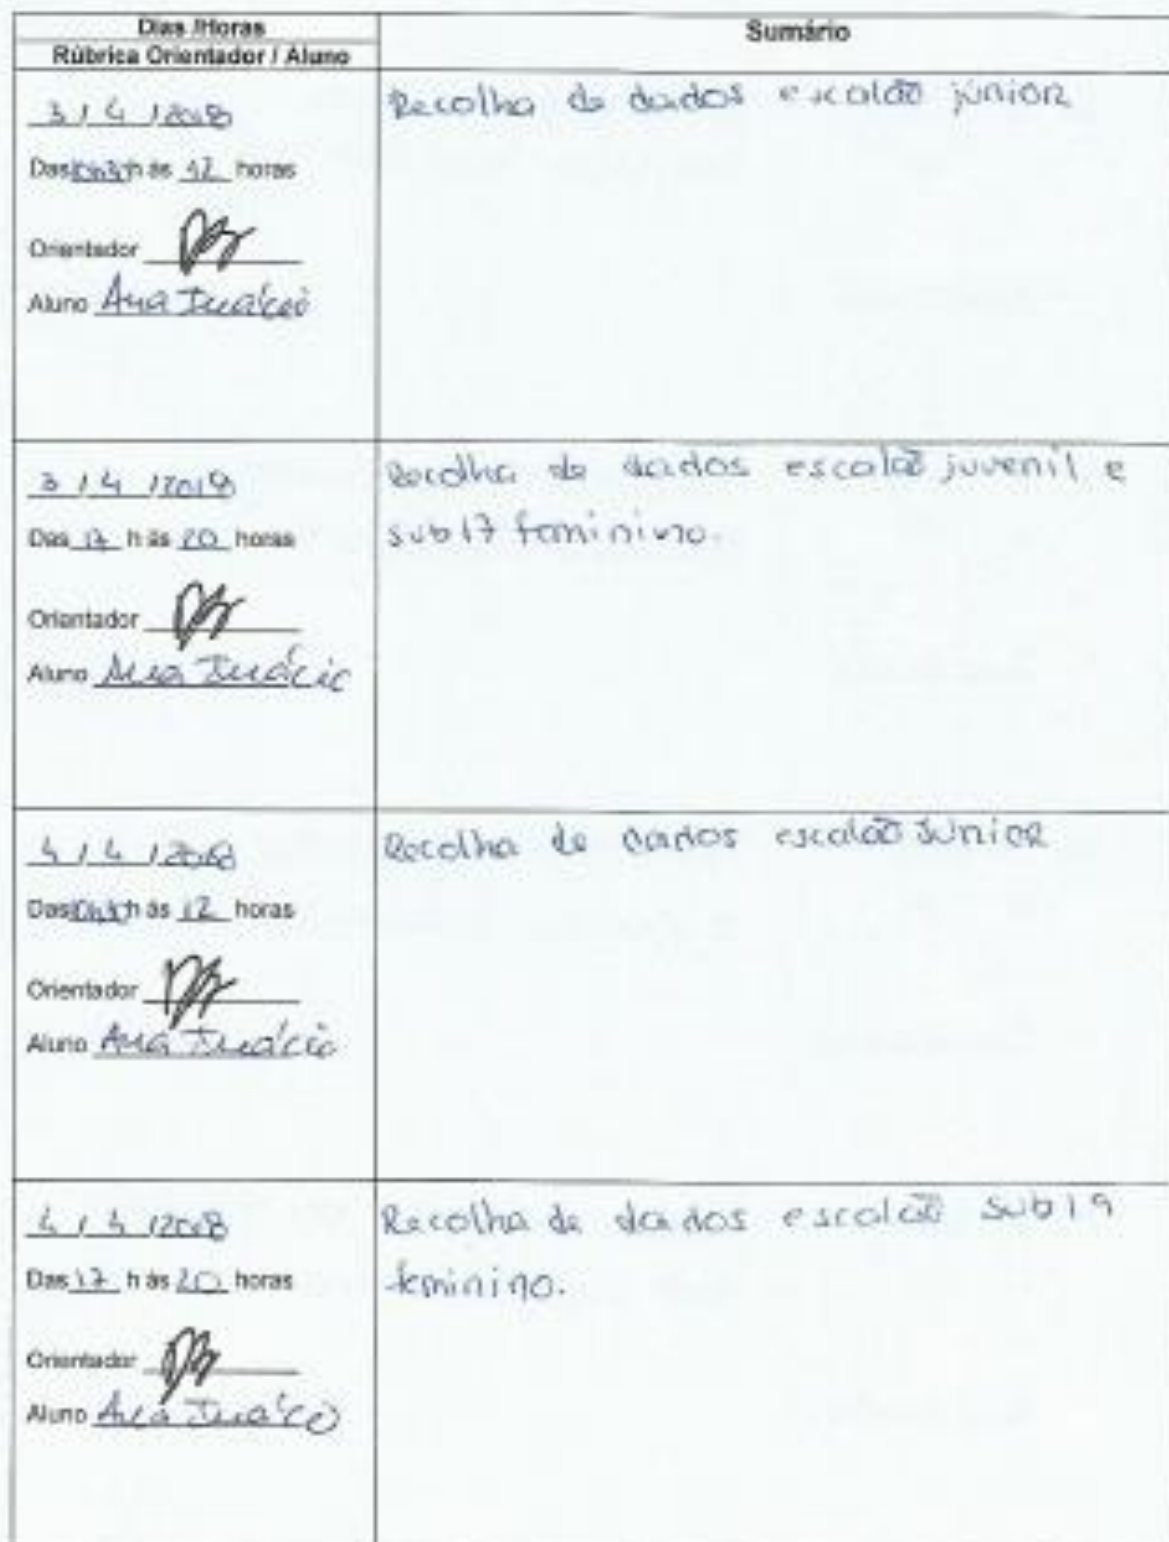 Dias /Horas
Rúbrica Orientador / Aluno
Sumário
3 / 4 / 2018
Das 10h30 h às 12 horas
Orientador
Aluno Ana Inácio
Recolha de dados escalão júnior
3 / 4 / 2018
Das 17 h às 20 horas
Orientador
Aluno Ana Inácio
Recolha de dados escalão juvenil e
sub17 feminino.
4 / 4 / 2018
Das 10h30 h às 12 horas
Orientador
Aluno Ana Inácio
Recolha de dados escalão Júnior
4 / 4 / 2018
Das 17 h às 20 horas
Orientador
Aluno Ana Inácio
Recolha de dados escalão Sub19
feminino.